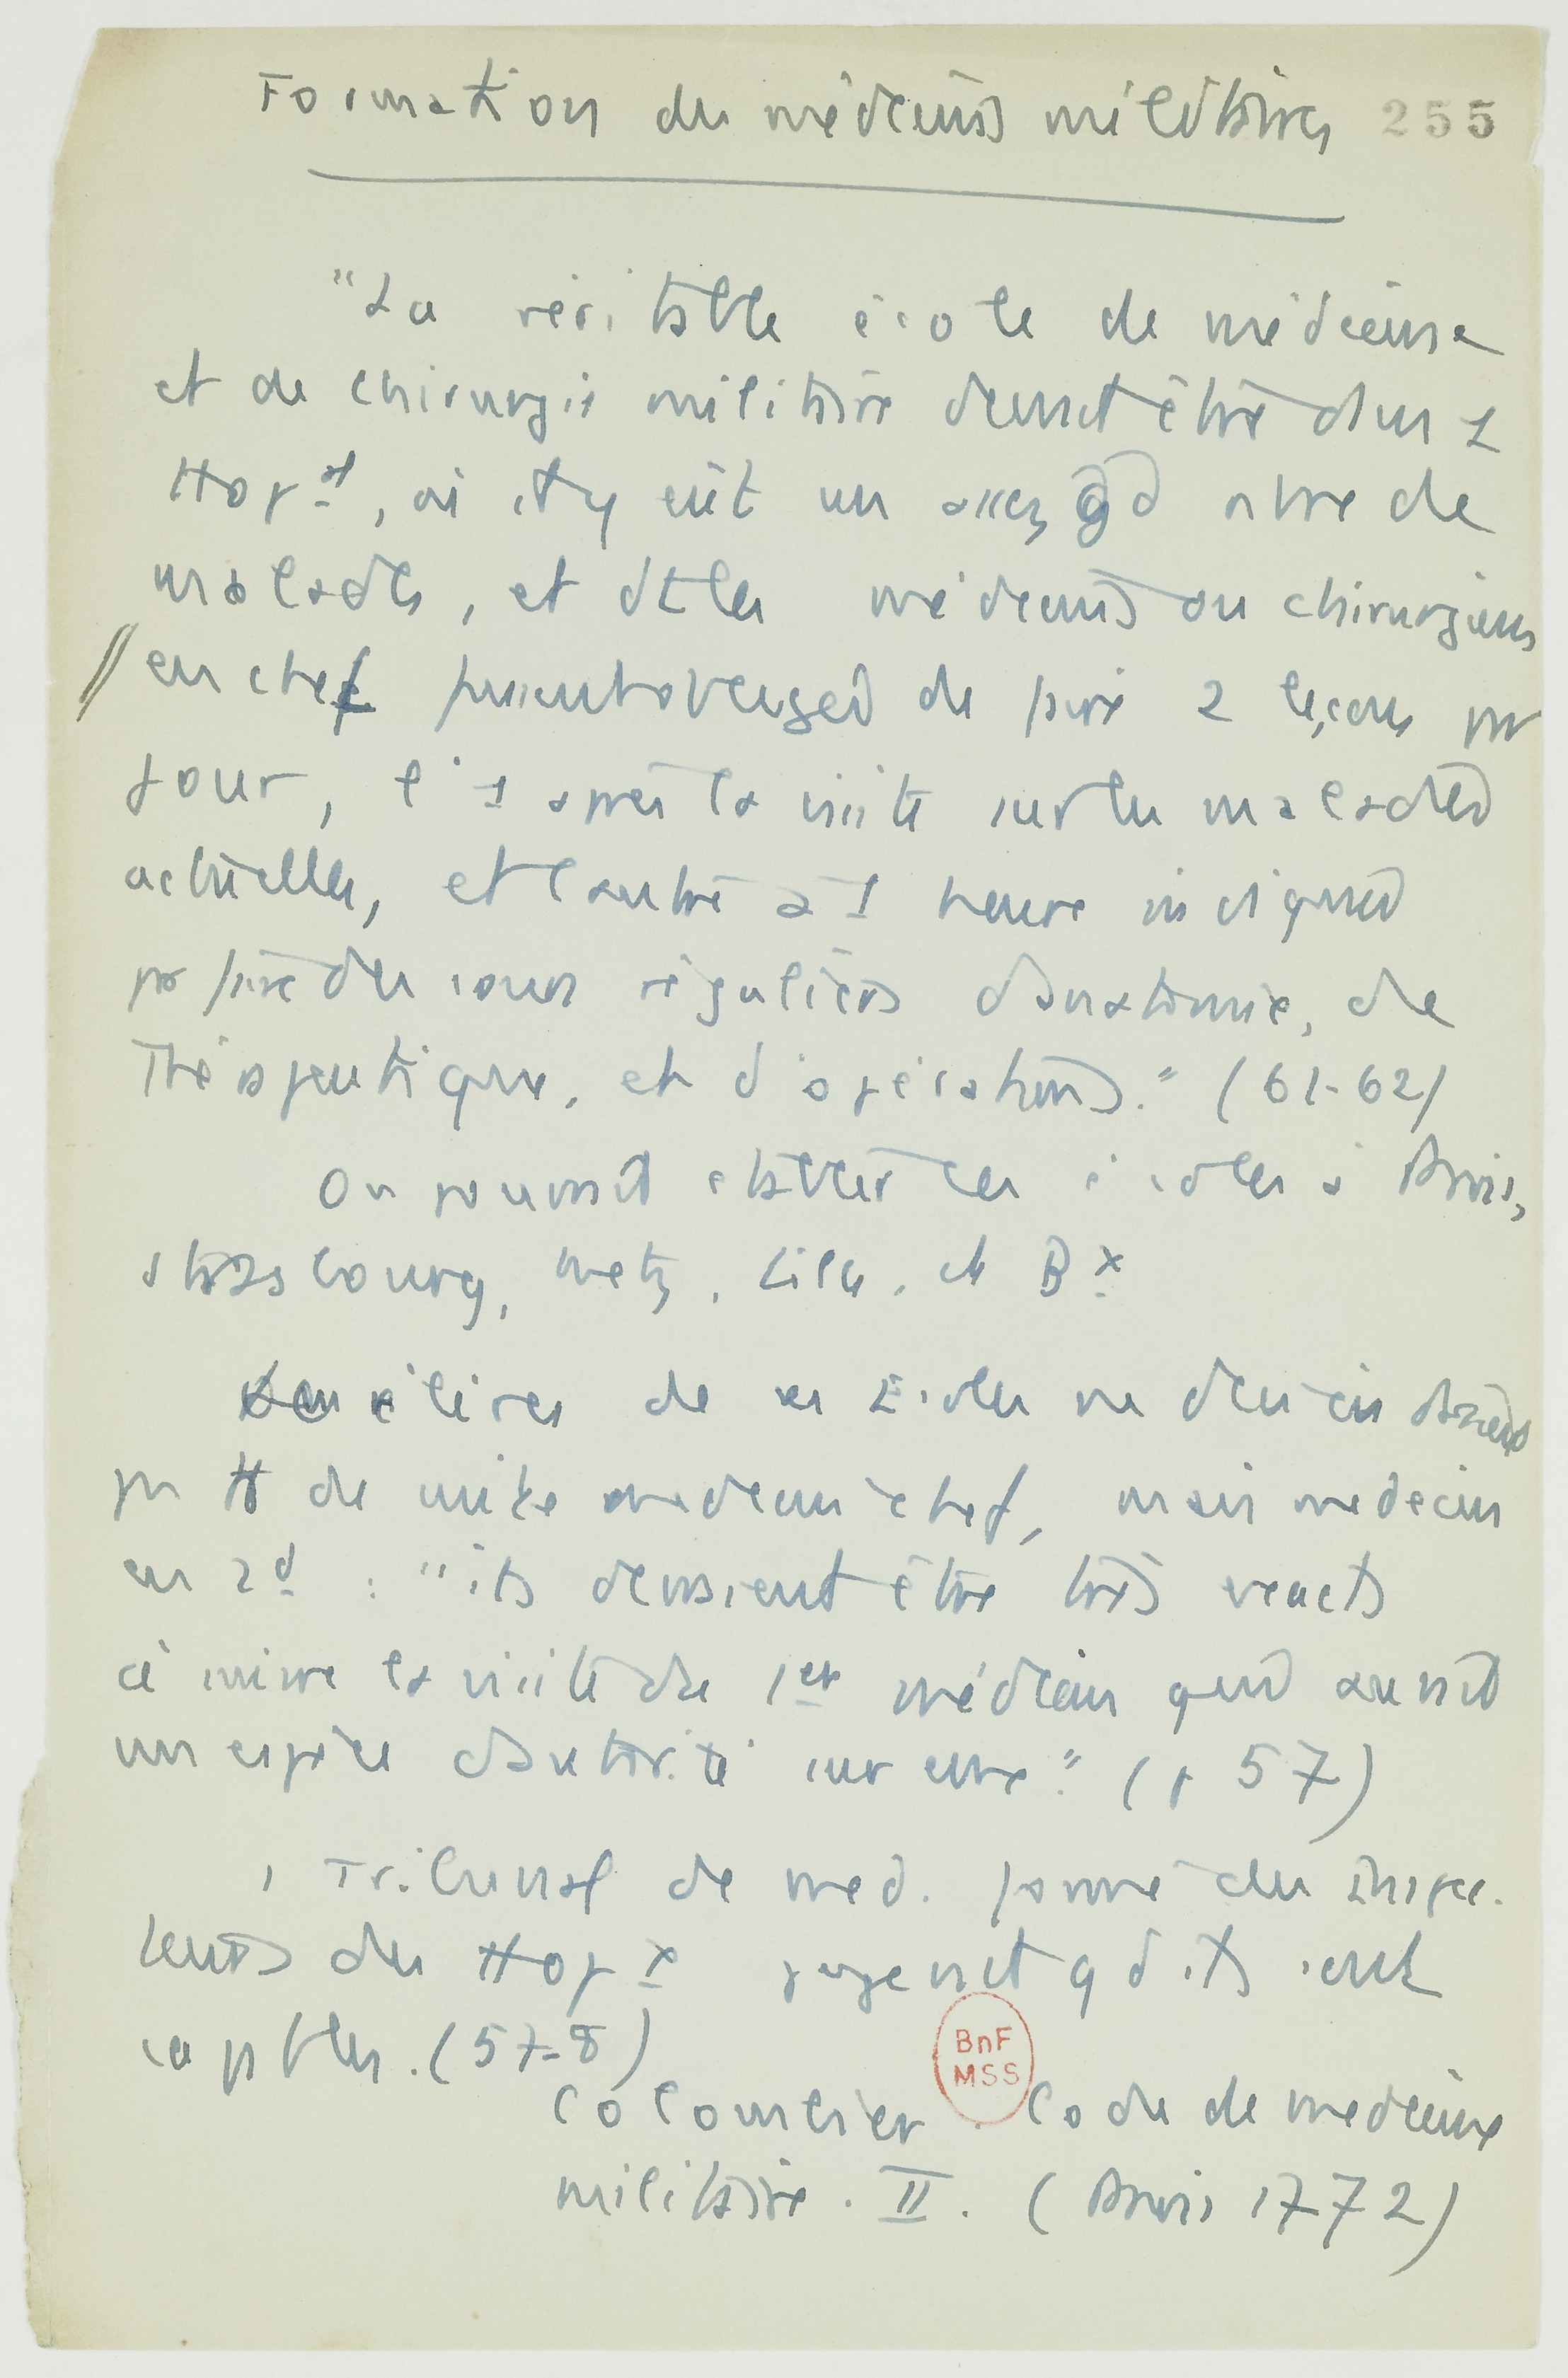 Formation des médecins militaires 255
"La véritable école de médecine
et de chirurgie militaire devrait être dans 1
Hopal, où il y eût un assez gd nbre de
malades, et dt les médecins ou chirurgiens
en chef fussent obligés de faire 2 leçons par
jour, l'1 après la visite sur les malades
actuelles, et l'autre à 1 heure indiquée
pr faire des cours réguliers d'anatomie, de
Thérapeutique, et d'opérations." (61-62)
On pourrait établir ces écoles à Paris,
Strasbourg, Metz, Lille, et Bx
Les élèves de ces Ecoles ne devraient
de suite médecin chef, mais médecin
en 2d : "ils devraient être très exacts
à suivre la visite du 1er médecin qui aurait
une espèce d'autorité sur eux." (p 57)
1 Tribunal de med. formé des inspec-
teurs des Hopx jugerait qd ils sont
capables. (57-8)
Colombier. Code de médecine
militaire. II. (Paris 1772)
BnF
MSS